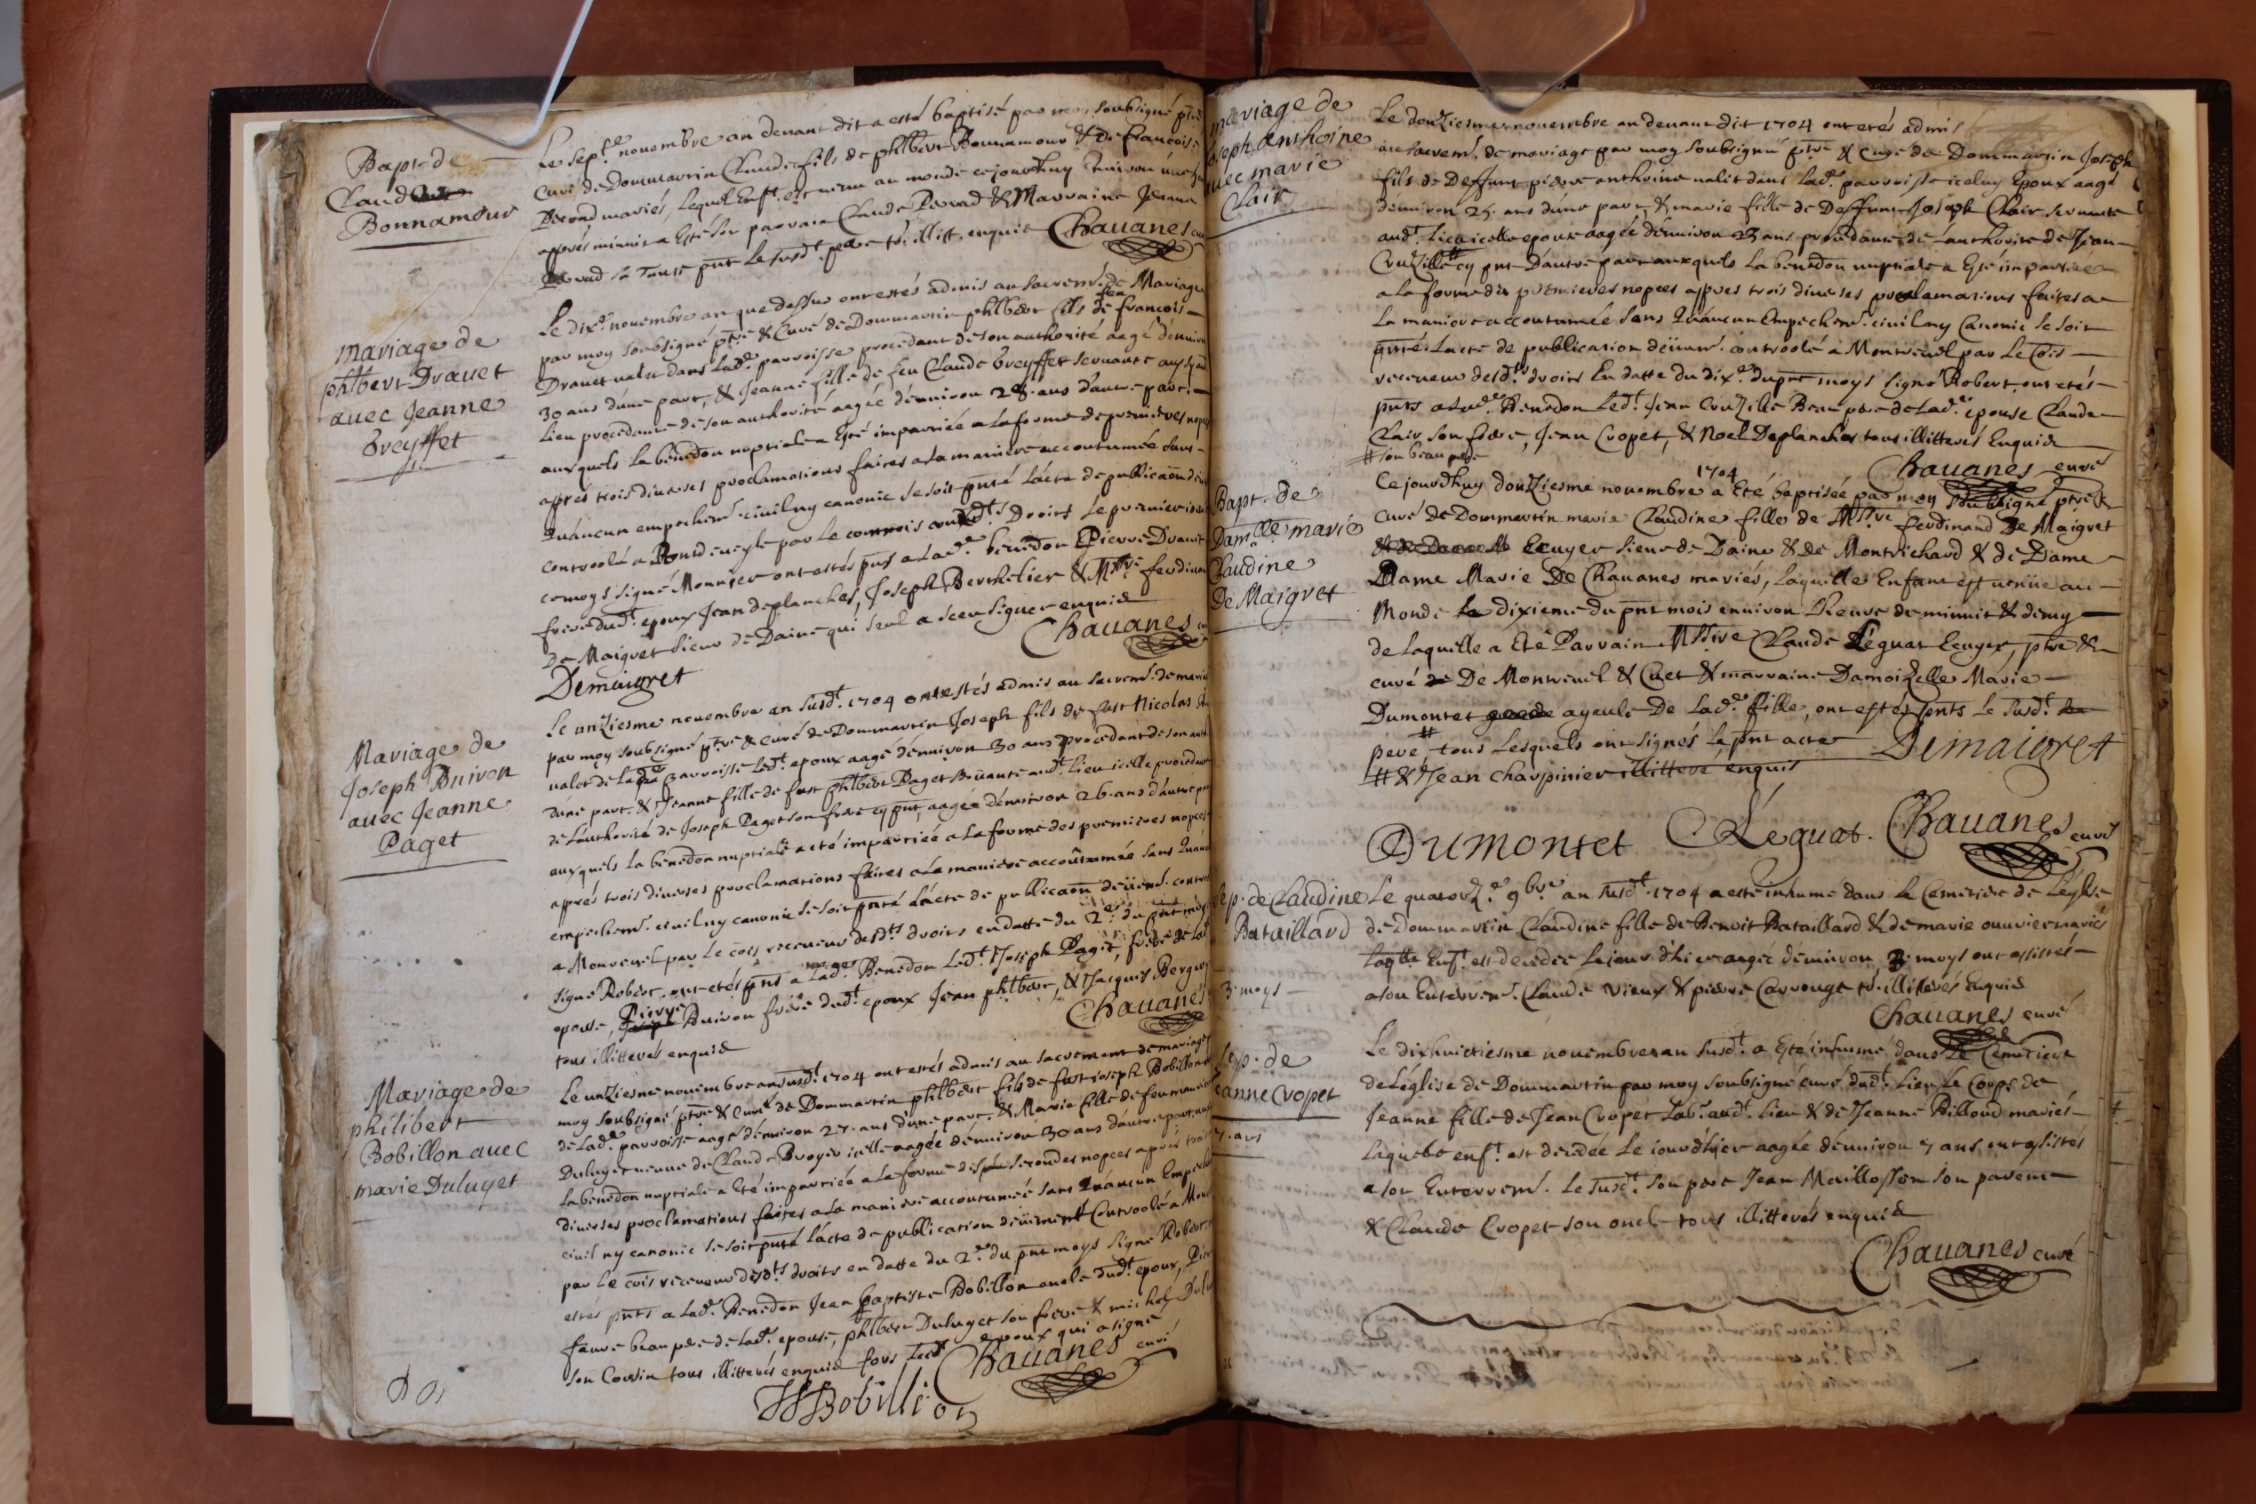 Bapt. de
Claude
Bonnamour
Le sept.e novembre an devant dit a esté baptisé par moy soubsigné ptre
curé de Dommartin Claude fils de philbert Bonnamour & de Francoise
Perrad mariés, lequel Enft. est venu au monde ce jourdhuy Environ une
apprés minuit a Esté son parrain Claude Perrad & Marraine Jeanne
Perrad sa Tante pnt le susdt. pere ts. illitt. enquis Chauanes
mariage de
philbert Drauet
avec Jeanne
breyffet
Le dixe. novembre an que dessus ont estés admis au sacremt. de Mariage
par moy soubsigné ptre & Curé de Dommartin philbert fils de feu francois
Drauet valet dans lade. parroisse procedant de son authorité aagé d'environ
30 ans d'une part, & Jeanne fille de feu Claude breyffet servante audt
lieu procedante de son authorité aagée denviron 28. ans d'autre part.
auxquels la bénedon nuptiale a Esté impartiée a la forme de premieres nopces
apprés trois diverses proclamations faites a la maniere accoutumée sans
quáucun empechemt. civil ny canonic se soit pnté l'acte de publicaon
controolé a par le commis auxdts. Droits le premier
ce moys signé Monnier ont estés pnts a lade. bénedon Pierre Drauet
frere dudt. epoux Jean deplanches, Joseph Berthelier & Mssre ferdinand
De Maigret sieur de Daine qui seul a sceu signer enquis
Chauanes
Demaigret
Mariage de
Joseph Buiron
avec Jeanne
Paget
Le unziesme novembre an susdt. 1704 ont estés admis au sacremt. de mariage
par moy soubsigné ptre & curé de Dommartin Joseph fils de fust Nicolas
valet de lade parroisse ledt. epoux aagé denviron 30 ans procedant de son
d'une part. & Jeanne fille de fust philbert Paget servante audt. lieu icelle procedante
de lauthorité de Joseph Paget son frere cy pnt, aagée denviron 26. ans d'autre part
auxquels la bénedon nuptiale a eté impartiée a la forme des premieres nopces
aprés trois diverses proclamations faites a la maniere accoûtumée sans quaucun
empechemt. civil ny canonic se soit pnté l'acte de publicaon deüemt. controolé
a Montrevel par le cois receveur desdts droits en datte du 2e. du pnt moys
signé Robert, ont etés pnts a lade. Benedon ledt. Joseph Paget, frere de lade
epouse, Pierre Buiron frere dudt. epoux Jean philbert, & Jacques
tous illitterés enquis
Chauanes
Mariage de
philibert
Bobillon avec
marie Duluyet
Le unziesme novembre an susdt. 1704 ont estés admis au sacrement de mariage
moy soubsigné ptre & Curé de Dommartin philbert fils de fust joseph Bobillon
de lade. parroisse aagé denviron 27. ans d'une part. & Marie fille de feu
Duluyet veuve de Claude Broyer icelle aagée denviron 30 ans d'autre part,
la bénedon nuptiale a Eté impartiée a la forme des secondes nopces aprés trois
diverses proclamations faites a la maniere accoutumée sans quáucun Empechemt
civil ny canonic se soit pnté l'acte de publication deüement Controolé a
par le cois receveur desdts droits en datte du 2e. du pnt moys signé Robert
estés pnts a lade. Benedon Jean baptiste Bobillon oncle dudt. epoux,
faure beau pere de lade. epouse, philbert Duluyet son frere & michel
son Cousin tous illitterés enquis fors ledt. epoux qui a signé
Chauanes curé
Bobillon
mariage de
Joseph Anthoine
avec marie
Clair
Le douziesme novembre an devant dit 1704 ont etés admis
au sacremt. de mariage par moy soubsigné ptre & curé de Dommartin Joseph
fils de Deffunt pierre anthoine valet dans lade. parroisse iceluy Epoux aagé
denviron 25. ans d'une part, & marie fille de Deffunt Joseph Clair servante
audt. lieu icelle epouse aagée denviron 23 ans procedante de lauthorité de Jean
Cruzille # cy pnt D'autre part auxquels la bénedon nuptiale a Esté impartiée
a la forme des premieres nopces appres trois diverses proclamations faites a
la maniere accoutumée sans quáucun Empechemt. civil ny Canonic se soit
pnté. L'acte de publication deüemt. controolé a Montrevel par le Cois
receveur desdts droits en datte du dixe. du pnt moys signé Robert, ont etés
pnts a lade. Benedon ledt. Jean Cruzille Beau pere de lade. epouse Claude
Clair son frere, Jean Cropet, & Noel Deplanches tous illitterés Enquis
# son beau pere
Chauanes curé
Bapt. de
Damlle marie
Claudine
De Maigret
Ce jourdhuy douziesme novembre 1704 a Eté baptisée par moy soubsigné ptre &
curé de Dommartin marie Claudine fille de Mssre ferdinand De Maigret
Ecuyer sieur de Daine & de Montrichard & de Dame
Dame Marie De Chauanes mariés, laquelle Enfant est venüe au
Monde le dixieme du pnt mois environ l'heure de minuit & demy
de laquelle a Eté Parrain Mssire Claude Léguat Ecuyer, ptre &
curé De Montrevel & Cuet & marraine Damoizelle Marie
Dumontet ayeule De lade. fille, ont estes pnts le susdt.
pere # tous lesquels ont signés le pnt acte Demaigret
# & Jean Charpinier illitteré enquis
DUMONTET Léguat. Chauanes curé
Sep. de Claudine
Bataillard
3 moys
Le quatorze. 9bre an susdt. 1704 a esté inhumé dans le Cemetiere de l'église
de Dommartin Claudine fille de Benoit Bataillard & de marie ouvrier mariés
laqlle Enft. est decedée le jour d'hier aagée denviron 3 moys ont assistés
a son Enterremt. Claude vieux & pierre Carronge ts. illiterés Enquis
Chauanes curé
Sep. de
Jeanne Cropet
7. ans
Le dixhuictiesme novembre an susdt. a Esté inhumé dans le Cemetiere
de l'église de Dommartin par moy soubsigné curé dudt. lieu le Corps de
Jeanne fille de Jean Cropet Labr. audt. lieu & de Jeanne Billoud mariés
laquelle enft. est decedée le jourd'hier aagée denviron 7 ans, ont assistés
a son Enterremt. le susdt. son pere Jean son parent
& Claude Cropet son oncle tous illitterés enquis
Chauanes curé